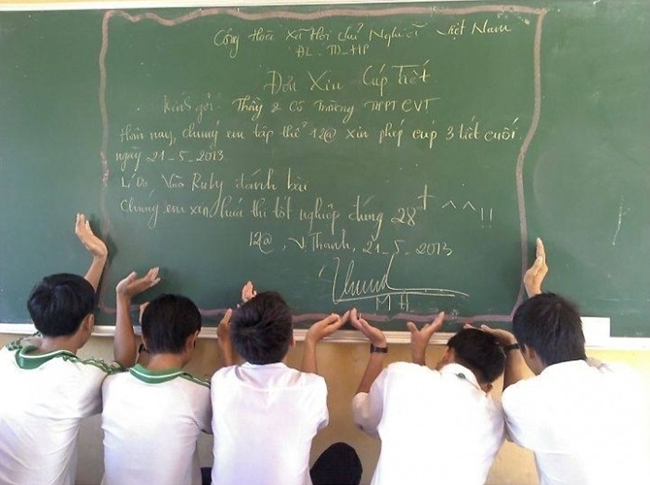 Cộng Hoà Xã Hội Chủ Nghĩa Việt Nam
ĐL_TD_HP
Đơn Xin Cúp Tiết
Kính gởi: Thầy & Cô Trường THPT CVT
Hôm nay, chúng em tập thể 12@ xin phép cúp 3 tiết cuối
ngày 21_5_2013
Lí Do: Vào Ruby đánh bài
Chúng em xin hứa thi tốt nghiệp đúng 28+ ^^!!
12@, V.Thanh, 21_5_2013
MH